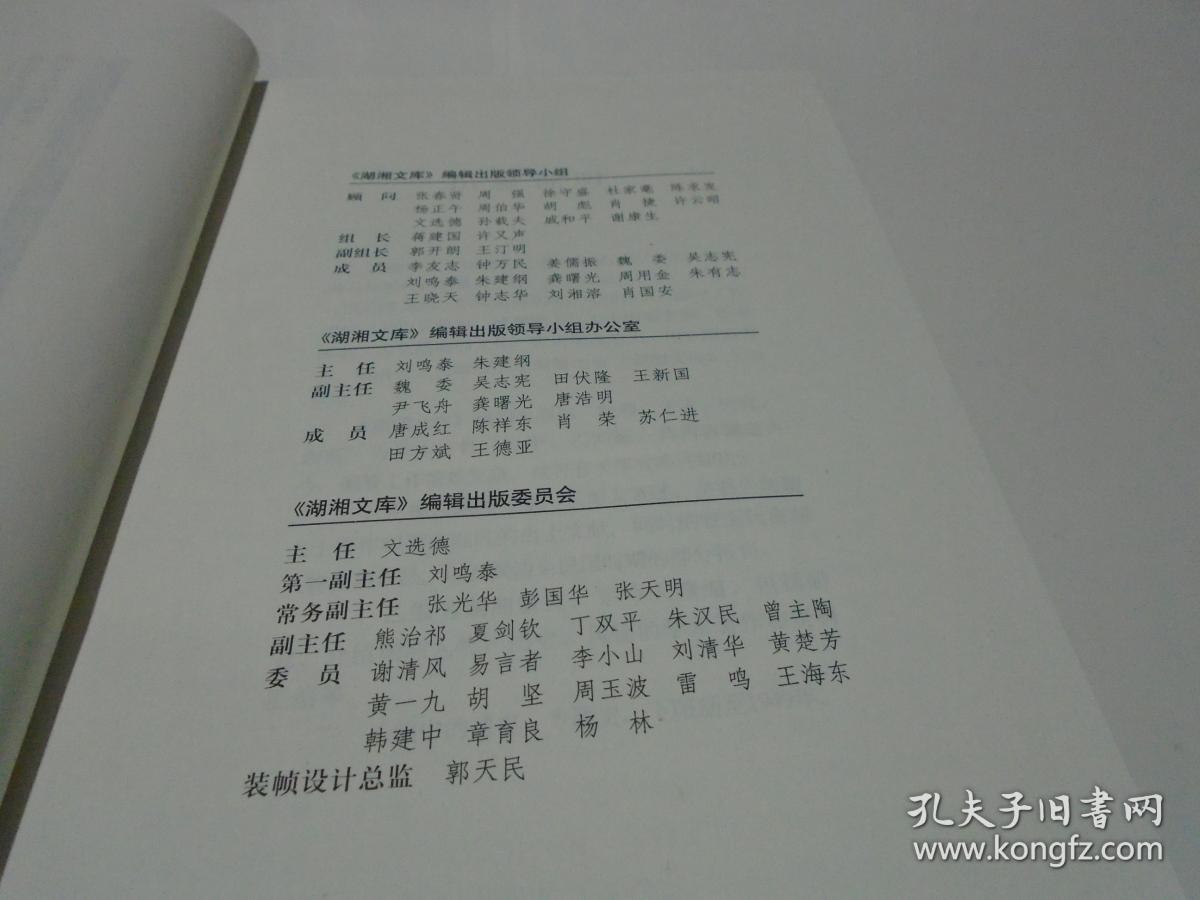 《湖湘文库》编辑出版领导小组
顾 问 张春贤 周 强 徐守盛 杜家毫 陈求发
杨正午 周伯华 胡 彪 肖 捷 许云昭
文选德 孙载夫 戚和平 谢康生
组 长 蒋建国 许又声
副组长 郭开朗 王汀明
成 员 李友志 钟万民 姜儒振 魏 委 吴志宪
刘鸣泰 朱建纲 龚曙光 周用金 朱有志
王晓天 钟志华 刘湘溶 肖国安
《湖湘文库》编辑出版领导小组办公室
主 任 刘鸣泰 朱建纲
副主任 魏 委 吴志宪 田伏隆 王新国
尹飞舟 龚曙光 唐浩明
成 员 唐成红 陈祥东 肖 荣 苏仁进
田方斌 王德亚
《湖湘文库》编辑出版委员会
主 任 文选德
第一副主任 刘鸣泰
常务副主任 张光华 彭国华 张天明
副主任 熊治祁 夏剑钦 丁双平 朱汉民 曾主陶
委 员 谢清风 易言者 李小山 刘清华 黄楚芳
黄一九 胡 坚 周玉波 雷 鸣 王海东
韩建中 章育良 杨 林
装帧设计总监 郭天民
孔夫子旧书网
www.kongfz.com